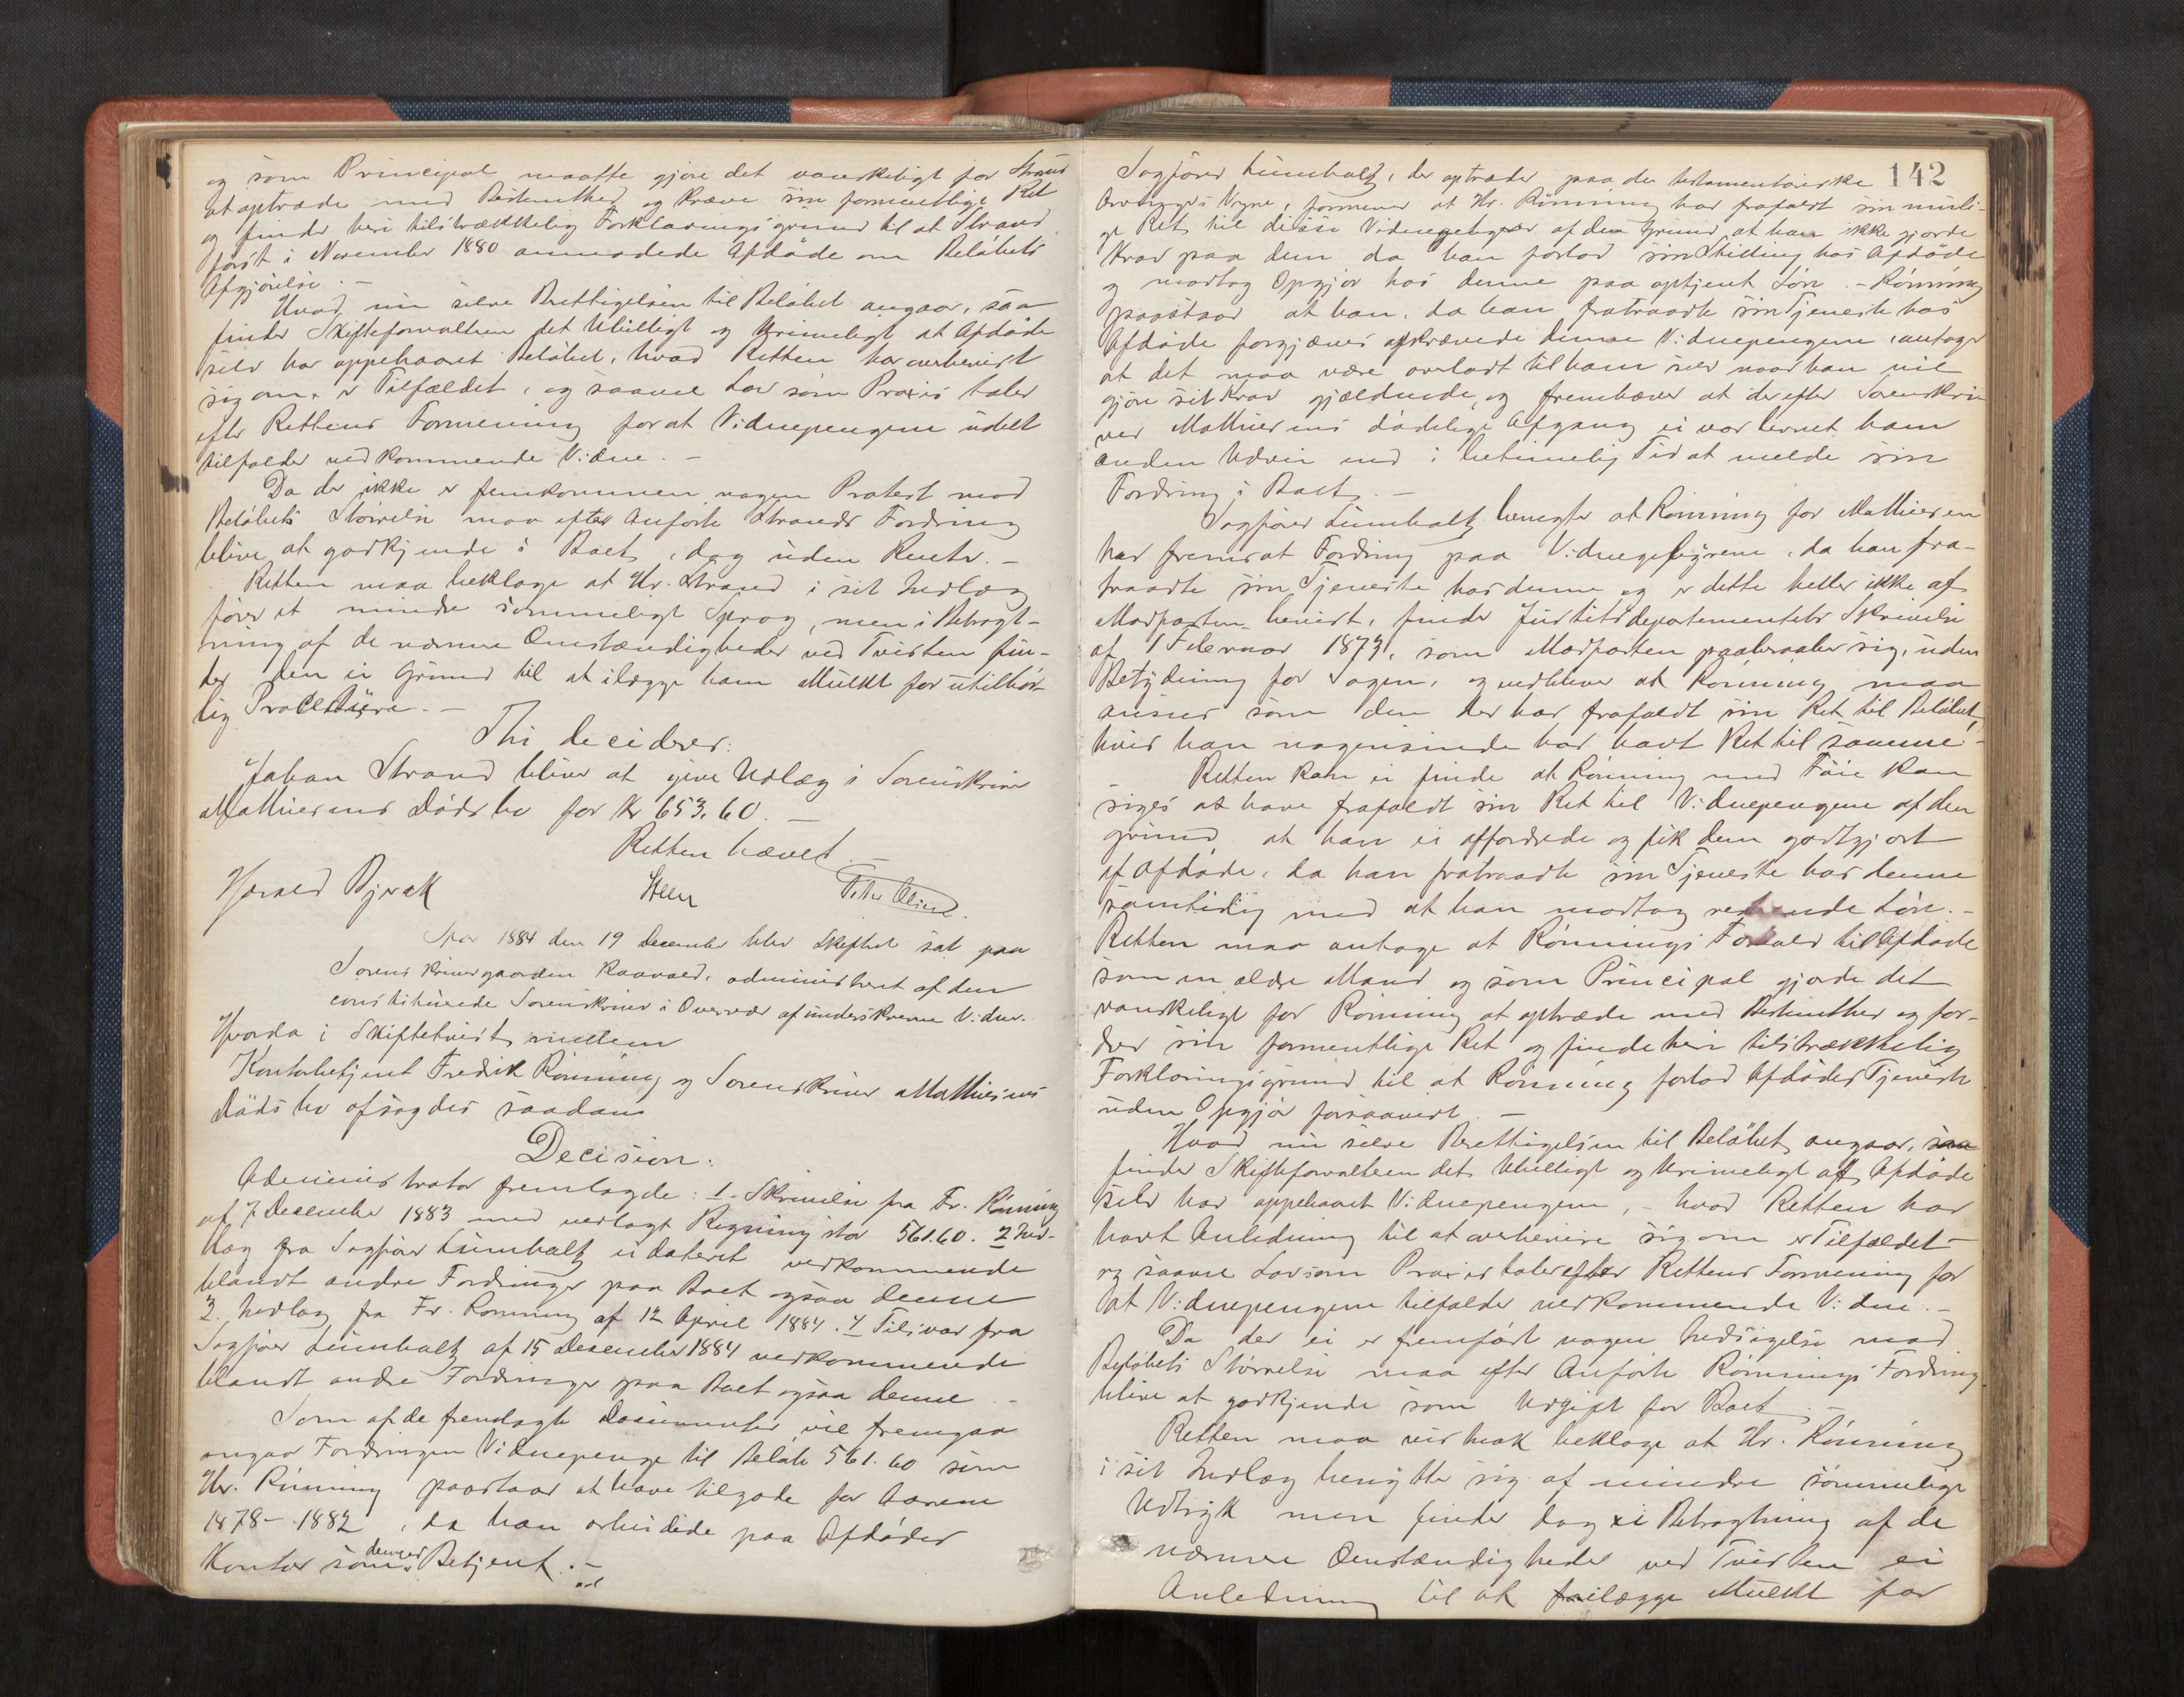 og som Principal maatte gjøre det vanskeligt for Strand
at optræde med Bestemthed og kræve sin formentlige Ret
og finder heri tilstrækkelig Forklaringsgrund til at Strand
først i November 1880 anmodede Afdøde om Beløbets
Afgjørelse. –
Hvad nu selve Berettigelsen til Beløbet angaar, saa
finder Skifteforvalteren det ubilligt og urimeligt at Afdøde
selv har oppebaaret Beløbet, hvad Retten har overbevist
sig om er Tilfældet, og saavel Lov som Praxis taler
efter Rettens Formening for at Vidnepengene udelt
tilfalder vedkommende Vidne. –
Da der ikke er fremkommen nogen Protest mod
Beløbets Størrelse maa efter Anførte Strands Fordring
blive at godkjende i Boet, dog uden Renter. –
Retten maa beklage at Hr. Strand i sit Indlæg
fører et mindre sømmeligt Sprog, men i Betragt-
ning af de nærmere Omstændigheder ved Tvisten fin-
der den ei Grund til at ilægge ham Mulkt for utilbør-
lig Procedure. –
Thi decideres:
Johan Strand bliver at give Udlæg i Sorenskriver
Mathiesens Dødsbo for Kr 653,60. –
Retten hævet. –
Harald Bjerck Steen Peter Olsen.
Aar 1884 den 19 December blev Skifteret sat paa
Sorenskrivergaarden Kaavald, administreret af den
constituerede Sorenskriver i Overvær af underskrevne Vidner.
Hvorda i Skiftetvist mellem
Kontorbetjent Fredrik Rønning og Sorenskriver Mathiesens
Dødsbo afsagdes saadan
Decision:
Administrator fremlagde: 1. Skrivelse fra Fr. Rønning
af 7 December 1883 med vedlagt Regning stor 561.60. 2 Ind-
læg fra Sagfører Lumholtz udateret vedkommende
blandt andre Fordringer paa Boet ogsaa denne
3. Indlæg fra Fr. Rønning af 12 April 1884. 4 Tilsvar fra
Sagfører Lumholtz af 15 December 1884 vedkommende
blandt andre Fordringer paa Boet ogsaa denne. –
Som af de fremlagte Documenter vil fremgaa
angaar Fordringen Vidnepenge til Beløb 561.60 som
Hr. Rønning paastaar at have tilgode for Aarene
1878–1882, da han arbeidede paa Afdødes
Kontor som dennes Betjent. –
142
Sagfører Lumholtz, der optræder paa de testamentariske
Arvingers Vegne, formener at Hr. Rønning har frafaldt sin muli-
ge Ret til disse Vidnegebyrer af den Grund at han ikke gjorde
Krav paa dem da han forlod sin Stilling hos Afdøde
og modtog Opgjør hos denne paa optjent Løn. – Rønning
paastaar at han, da han fratraadte sin Tjeneste hos
Afdøde forgjæves afkrævede denne Vidnepengene, antager
at det maa være overladt til ham selv naar han vil
gjøre sit Krav gjældende, og fremhæver at der efter Sorenskri-
ver Mathiesens dødelige Afgang ei var levnet ham
anden Udvei end i betimelig Tid at melde sin
Fordring i Boet. –
Sagfører Lumholtz benegter at Rønning for Mathiesen
har fremsat Fordring paa Vidnegebyrene, da han fra-
traadte sin Tjeneste hos denne og er dette heller ikke af
Modparten bevist, finder Justitsdepartementets Skrivelse
af 1 Februar 1873, som Modparten paaberaaber sig, uden
Betydning for Sagen, og vedbliver at Rønning maa
ansees som den der har frafaldt sin Ret til Beløbet,
hvis han nogensinde har havt Ret til samme. –
Retten kan ei finde at Rønning med Føie kan
siges at have frafaldt sin Ret til Vidnepengene af den
Grund at han ei affordrede og fik dem godtgjort
af Afdøde, da han fratraadte sin Tjeneste hos denne
samtidig med at han modtog Løn. –
Retten maa antage at Rønnings Forhold til Afdøde
som en ældre Mand og som Principal gjorde det
vanskeligt for Rønning at optræde med Bestemthed og for-
dre sin formentlige Ret og finde heri tilstrækkelig
Forklaringsgrund til at Rønning forlod Afdødes Tjeneste
uden Opgjør forsaavidt. –
Hvad nu selve Berettigelsen til Beløbet angaar, saa
finder Skifteforvalteren det Ubilligt og Urimeligt at Afdøde
selv har oppebaaret Vidnepengene, – hvad Retten har
havt Anledning til at overbevise sig om er Tilfældet –
og saavel Lov som Praxis taler efter Rettens Formening for
at Vidnepengene tilfalder vedkommende Vidne. –
Da der ei er fremført nogen Indsigelse mod
Beløbets Størrelse maa efter Anførte Rønnings Fordring
blive at godkjende som Udgift for Boet. –
Retten maa beklage at Hr. Rønning
i sit Indlæg benytter sig af mindre sømmelige
Udtryk men finder dog i Betragtning af de
nærmere Omstændigheder ved Tvisten ei
Anledning til at ilægge Mulkt for